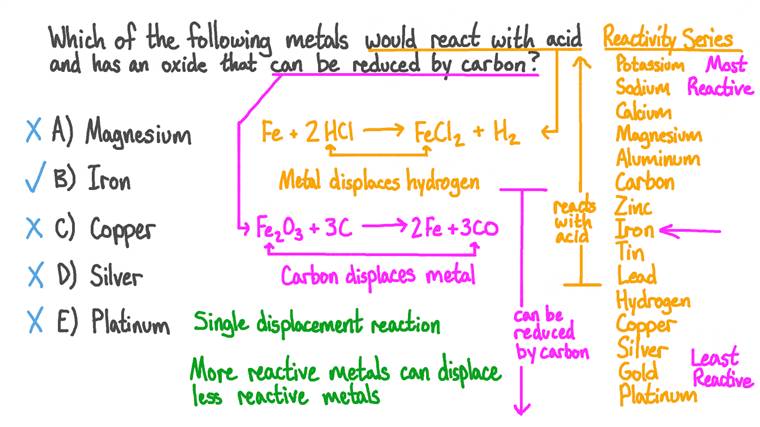 Which of the following metals would react with acid
and has an oxide that can be reduced by carbon?
A) Magnesium
B) Iron
C) Copper
D) Silver
E) Platinum
Fe + 2HCl → FeCl₂ + H₂
Metal displaces hydrogen
Fe₂O₃ + 3C → 2Fe + 3CO
Carbon displaces metal
Single displacement reaction
More reactive metals can displace
less reactive metals
can be
reduced
by carbon
reacts
with
acid
Reactivity Series
Potassium
Sodium
Calcium
Magnesium
Aluminum
Carbon
Zinc
Iron
Tin
Lead
Hydrogen
Copper
Silver
Gold
Platinum
Most
Reactive
Least
Reactive